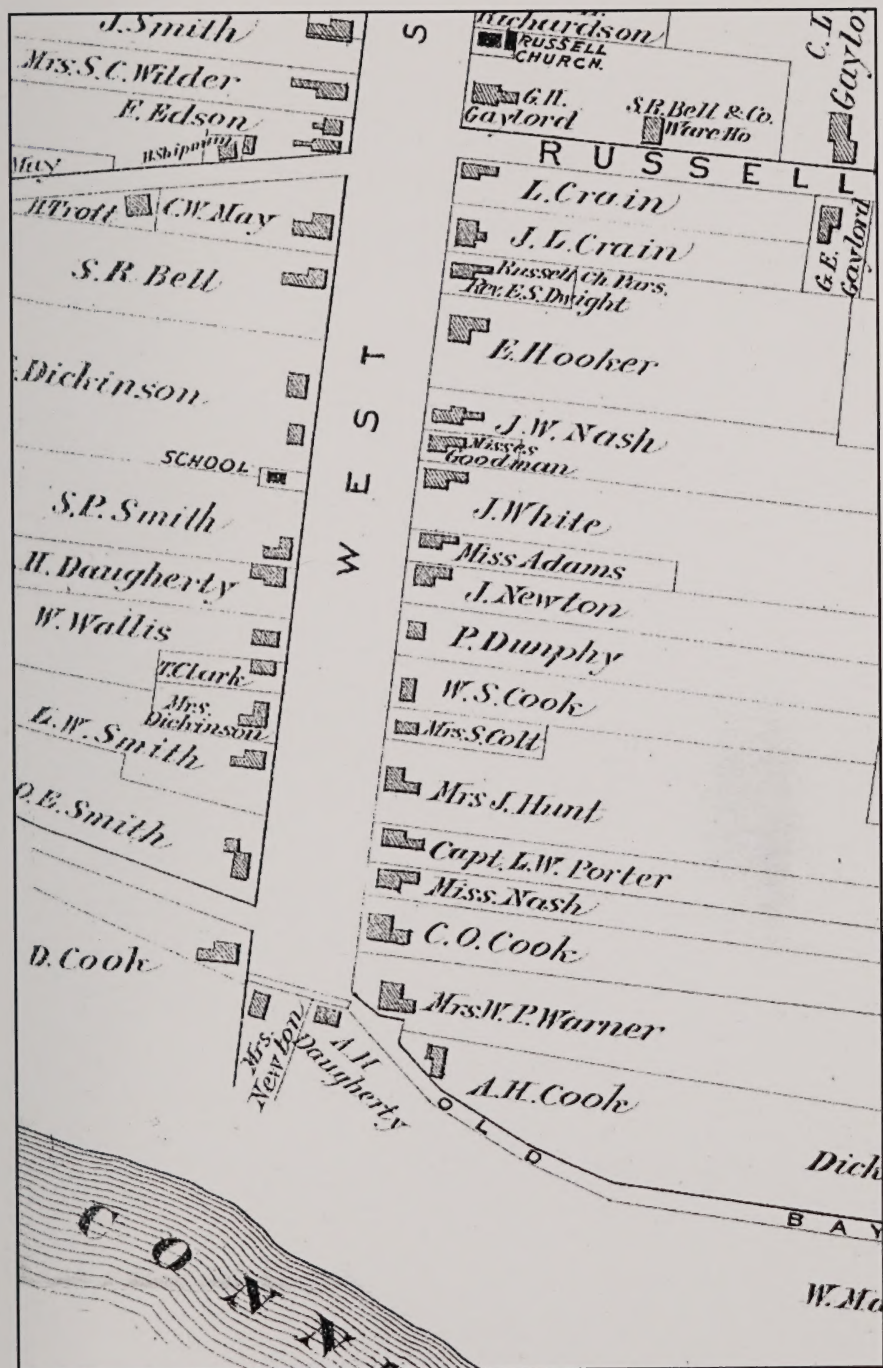 J. Smith
Mrs. S. C. Wilder
F. Edson
B. Shipman
May
H. Trott
C. W. May
S. R. Bell
Dickinson
SCHOOL
S. P. Smith
H. Daugherty
W. Wallis
T. Clark
Mrs.
Dickinson
L. W. Smith
O. E. Smith
D. Cook
Mrs.
Newton
A. H
Daugherty
S
WEST
Richardson
RUSSELL
CHURCH.
G. H.
Gaylord
S. R. Bell & Co.
Ware Ho
C. L
Gaylo
RUSSELL
L. Crain
J. L. Crain
G. E.
Gaylord
Russell Ch Pars.
Rev. E. S. Dwight
E. Hooker
J. W. Nash
Misses
Goodman
J. White
Miss Adams
J. Newton
P. Dunphy
W. S. Cook
Mrs. S. Colt
Mrs J. Hunt
Capt. L. W. Porter
Miss. Nash
C. O. Cook
Mrs. W. P. Warner
A. H. Cook
OLD
BAY
Dick
W. Ma
CONN